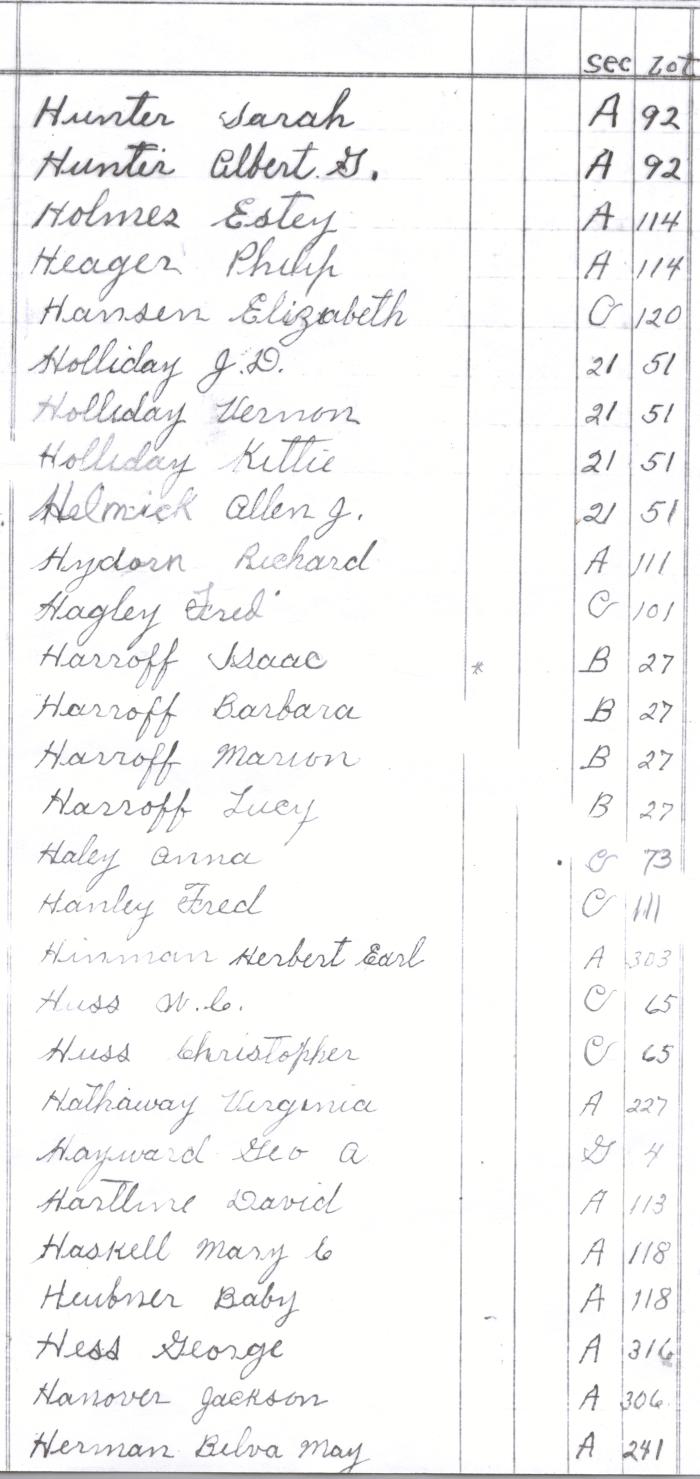 Sec Lot
Hunter Sarah A 92
Hunter Albert G. A 92
Holmes Estey A 114
Heager Philip A 114
Hansen Elizabeth C 120
Holliday J.D. 21 51
Holliday Vernon 21 51
Holliday Kittie 21 51
Helmick Allen J. 21 51
Hydorn Richard A 111
Hagley Fred C 101
Harroff Isaac * B 27
Harroff Barbara B 27
Harroff Marion B 27
Harroff Lucy B 27
Haley Anna C 73
Hanley Fred C 111
Hinman Herbert Earl A 303
Huss W.C. C 65
Huss Christopher C 65
Hathaway Virginia A 227
Hayward Geo A G 4
Hartline David A 113
Haskell Mary E A 118
Heubner Baby A 118
Hess George A 316
Hanover Jackson A 306
Herman Belva May A 241